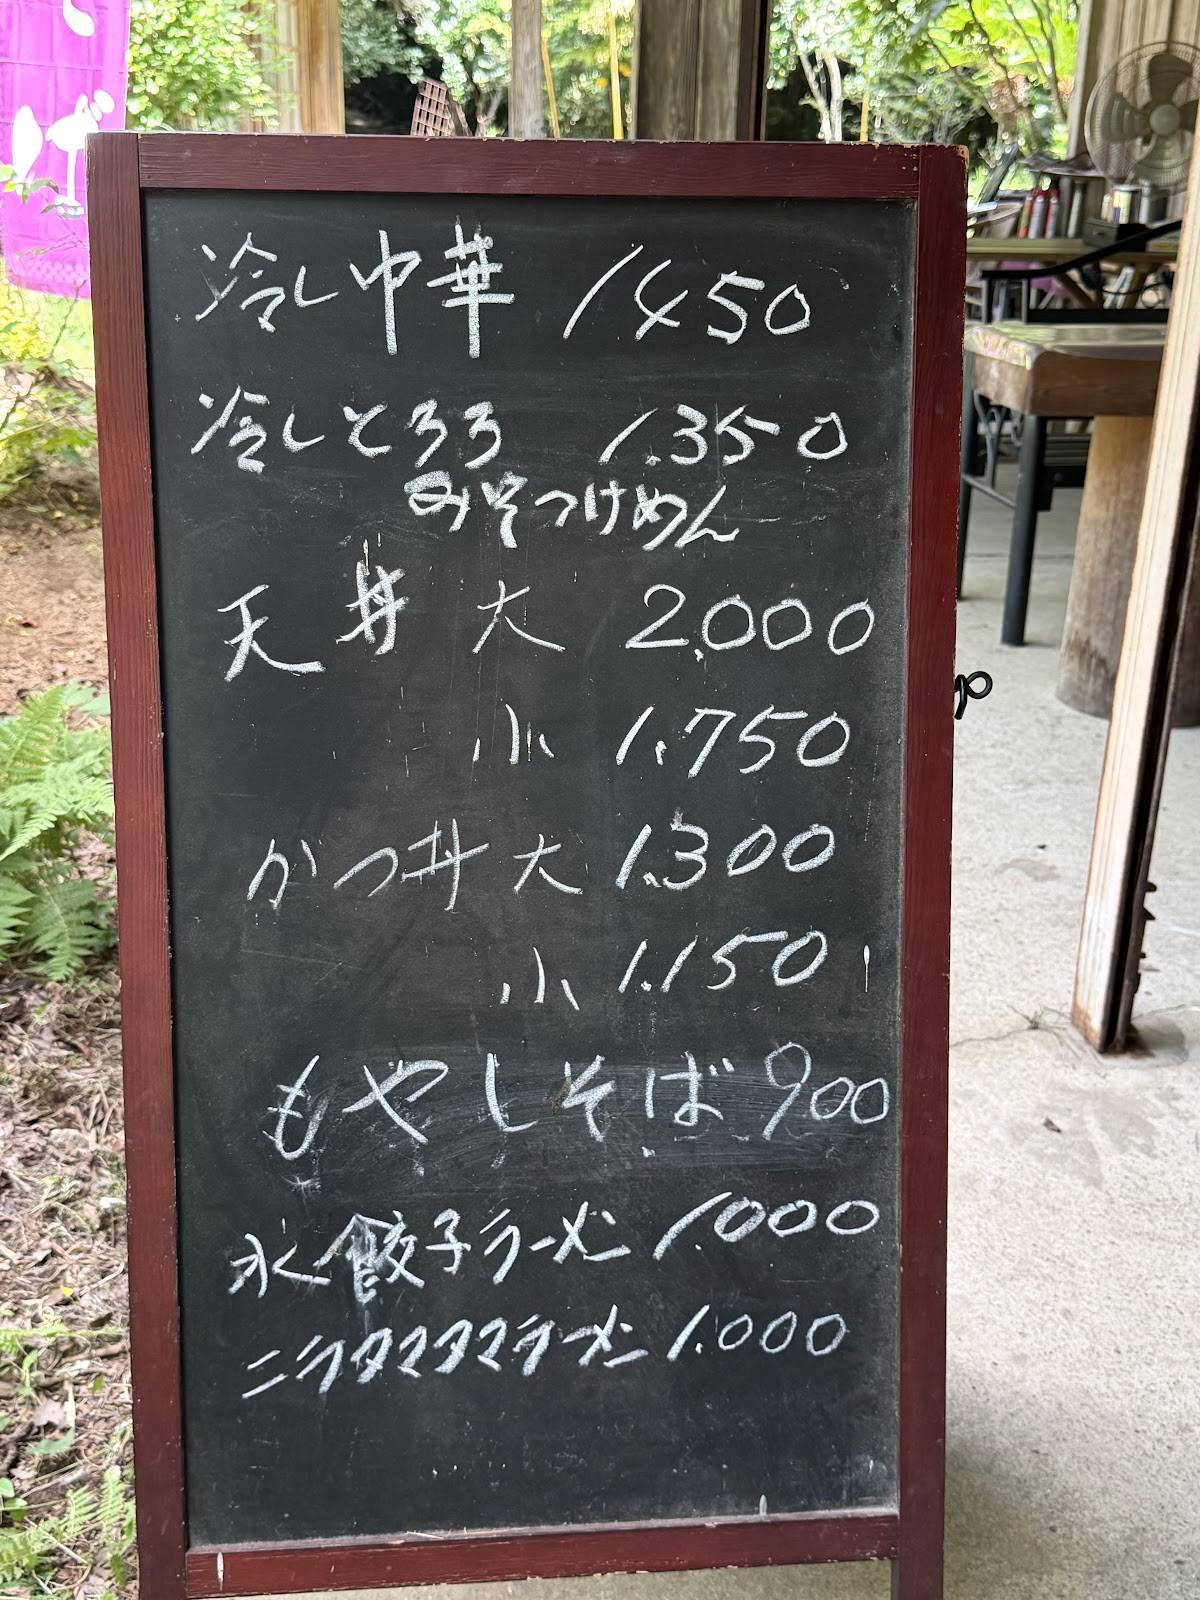 冷し中華 1450
冷しとろろ 1.350
みそつけめん
天丼 大 2.000
小 1.750
かつ丼 大 1.300
小 1.150
もやしそば 900
水餃子ラーメン 1.000
ニラタマタマラーメン 1.000